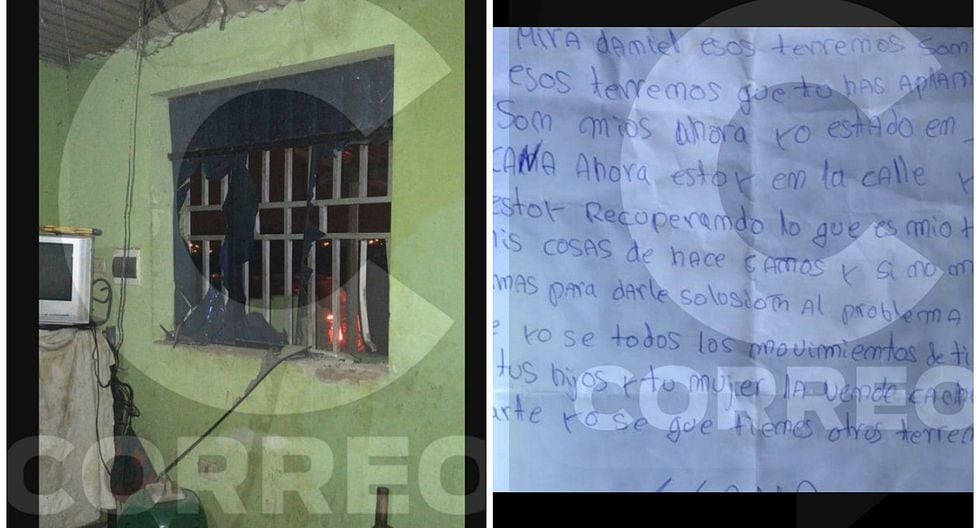 MIRA DANIEL esos terremos som
esos terremos que tu HAS Aplam
Som mios Ahora yo estADO em
CANA Ahora estoy em la CAlle y
estoy Recuperamdo lo que es mio t
mis COSAS de HACE 5 AÑOS y si mo
mas PARA DARle solusiom Al problema
yo se todos los movimiemtos de ti
tus Hijos y tu mujer LA vemde
yo se que tiemes otros terrem
CORREO
CORREO